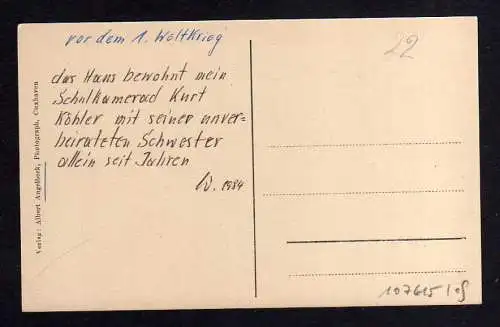 vor dem 1. Weltkrieg
22
das Haus bewohnt mein
Schulkamerad Kurt
Köhler mit seiner unver=
heirateten Schwester
allein seit Jahren
W. 1984
Verlag: Albert Angelbeck, Photograph, Cuxhaven
107615 / oS